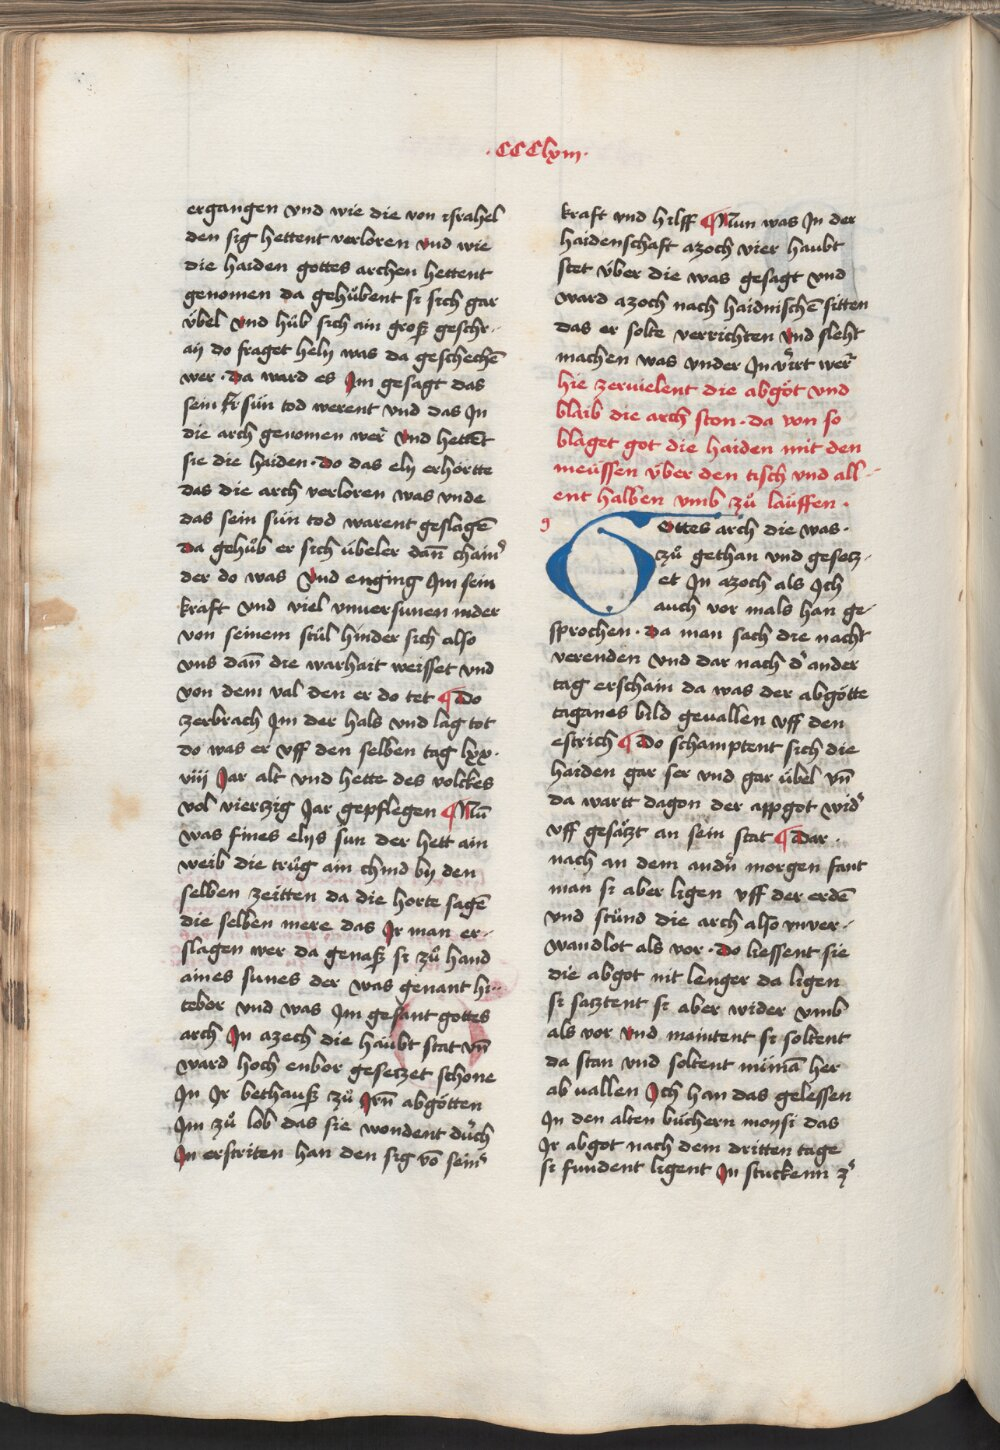 ·CCClxiii·
ergangen vnd wie die von israhel
den sig hettent verloren vnd wie
die haiden gottes archen hettent
genomen da gehůbent si sich gar
v̈bel vnd hůb sich ain groß geschr-
aÿ do fraget helÿ was da geschechē
wer · da ward es Im gesagt das
sein sün tod werent vnd das In
die arch genomen wer̄ vnd hettēt
sie die haiden · do das elÿ erhörtte
das die arch verloren was vnde
das sein sün tod warent geslagē
da gehůb er sich übeler dañ chain͛
der do was vnd enging Im sein
kraft vnd viel vnuersunen nider
von seinem stůl hinder sich also
vns dañ die warhait weisset vnd
von dem val den er do tet ¶ Do
zerbrach Im der hals vnd lag tot
do was er vff den selben tag lxx·
viij Jar alt vnd hette des volckes
vol viertzig Jar gepflegen ¶ Nū
was fines elÿs sun der hett ain
weib die trůg ain chind bÿ den
selben zeitten da die horte sagē
die selben mere das Ir man er-
slagen wer da genaß si zů hand
aines sunes der was genant hi-
tebor vnd was Im gesant gottes
arch In azech die haubt stat vñ
ward hoch enbor gesetzet schone
In Ir bethauß zů Irñ abgötten
Im zů lob das sie wondent durch
In erstriten han den sig vō sein͛
kraft vnd hilff ¶ Nun was In der
haidenschaft azoch vier haubt
stet v̈ber die was gesagt vnd
ward azoch nach haidnischē sitten
das er solte verrichten vnd sleht
machen was vnder In v̈irt wer̄
hie zeruielent die abgöt vnd
blaib die arch ston · da von so
blaget got die haiden mit den
meüssen v̈ber den tisch vnd all-
ent halben vmb zů lauffen ·
g
Gottes arch die was ·
zů gethan vnd gesetz-
et In azoch als Ich
auch vor mals han ge-
sprochen · da man sach die nacht
verenden vnd dar nach d͛ ander
tag erschain da was der abgötte
taganes bild geuallen vff den
estrich ¶ Do schamptent sich die
haiden gar ser vnd gar übel vñ
da wartt dagon der appgot wid͛
vff gesätzt an sein stat ¶ Dar ·
nach an dem andn̄ morgen fant
man si aber ligen vff der erdē
vnd stůnd die arch also vnver-
wandlot als vor · do liessent sie
die abgot nit lenger da ligen
si satztent si aber wider vmb
als vor vnd maintent si soltent
da stan vnd soltent nümā her
ab uallen Ich han das gelessen
In den alten büchern moysi das
Ir abgot nach dem dritten tage
si fundent ligent In stuckenn z͛